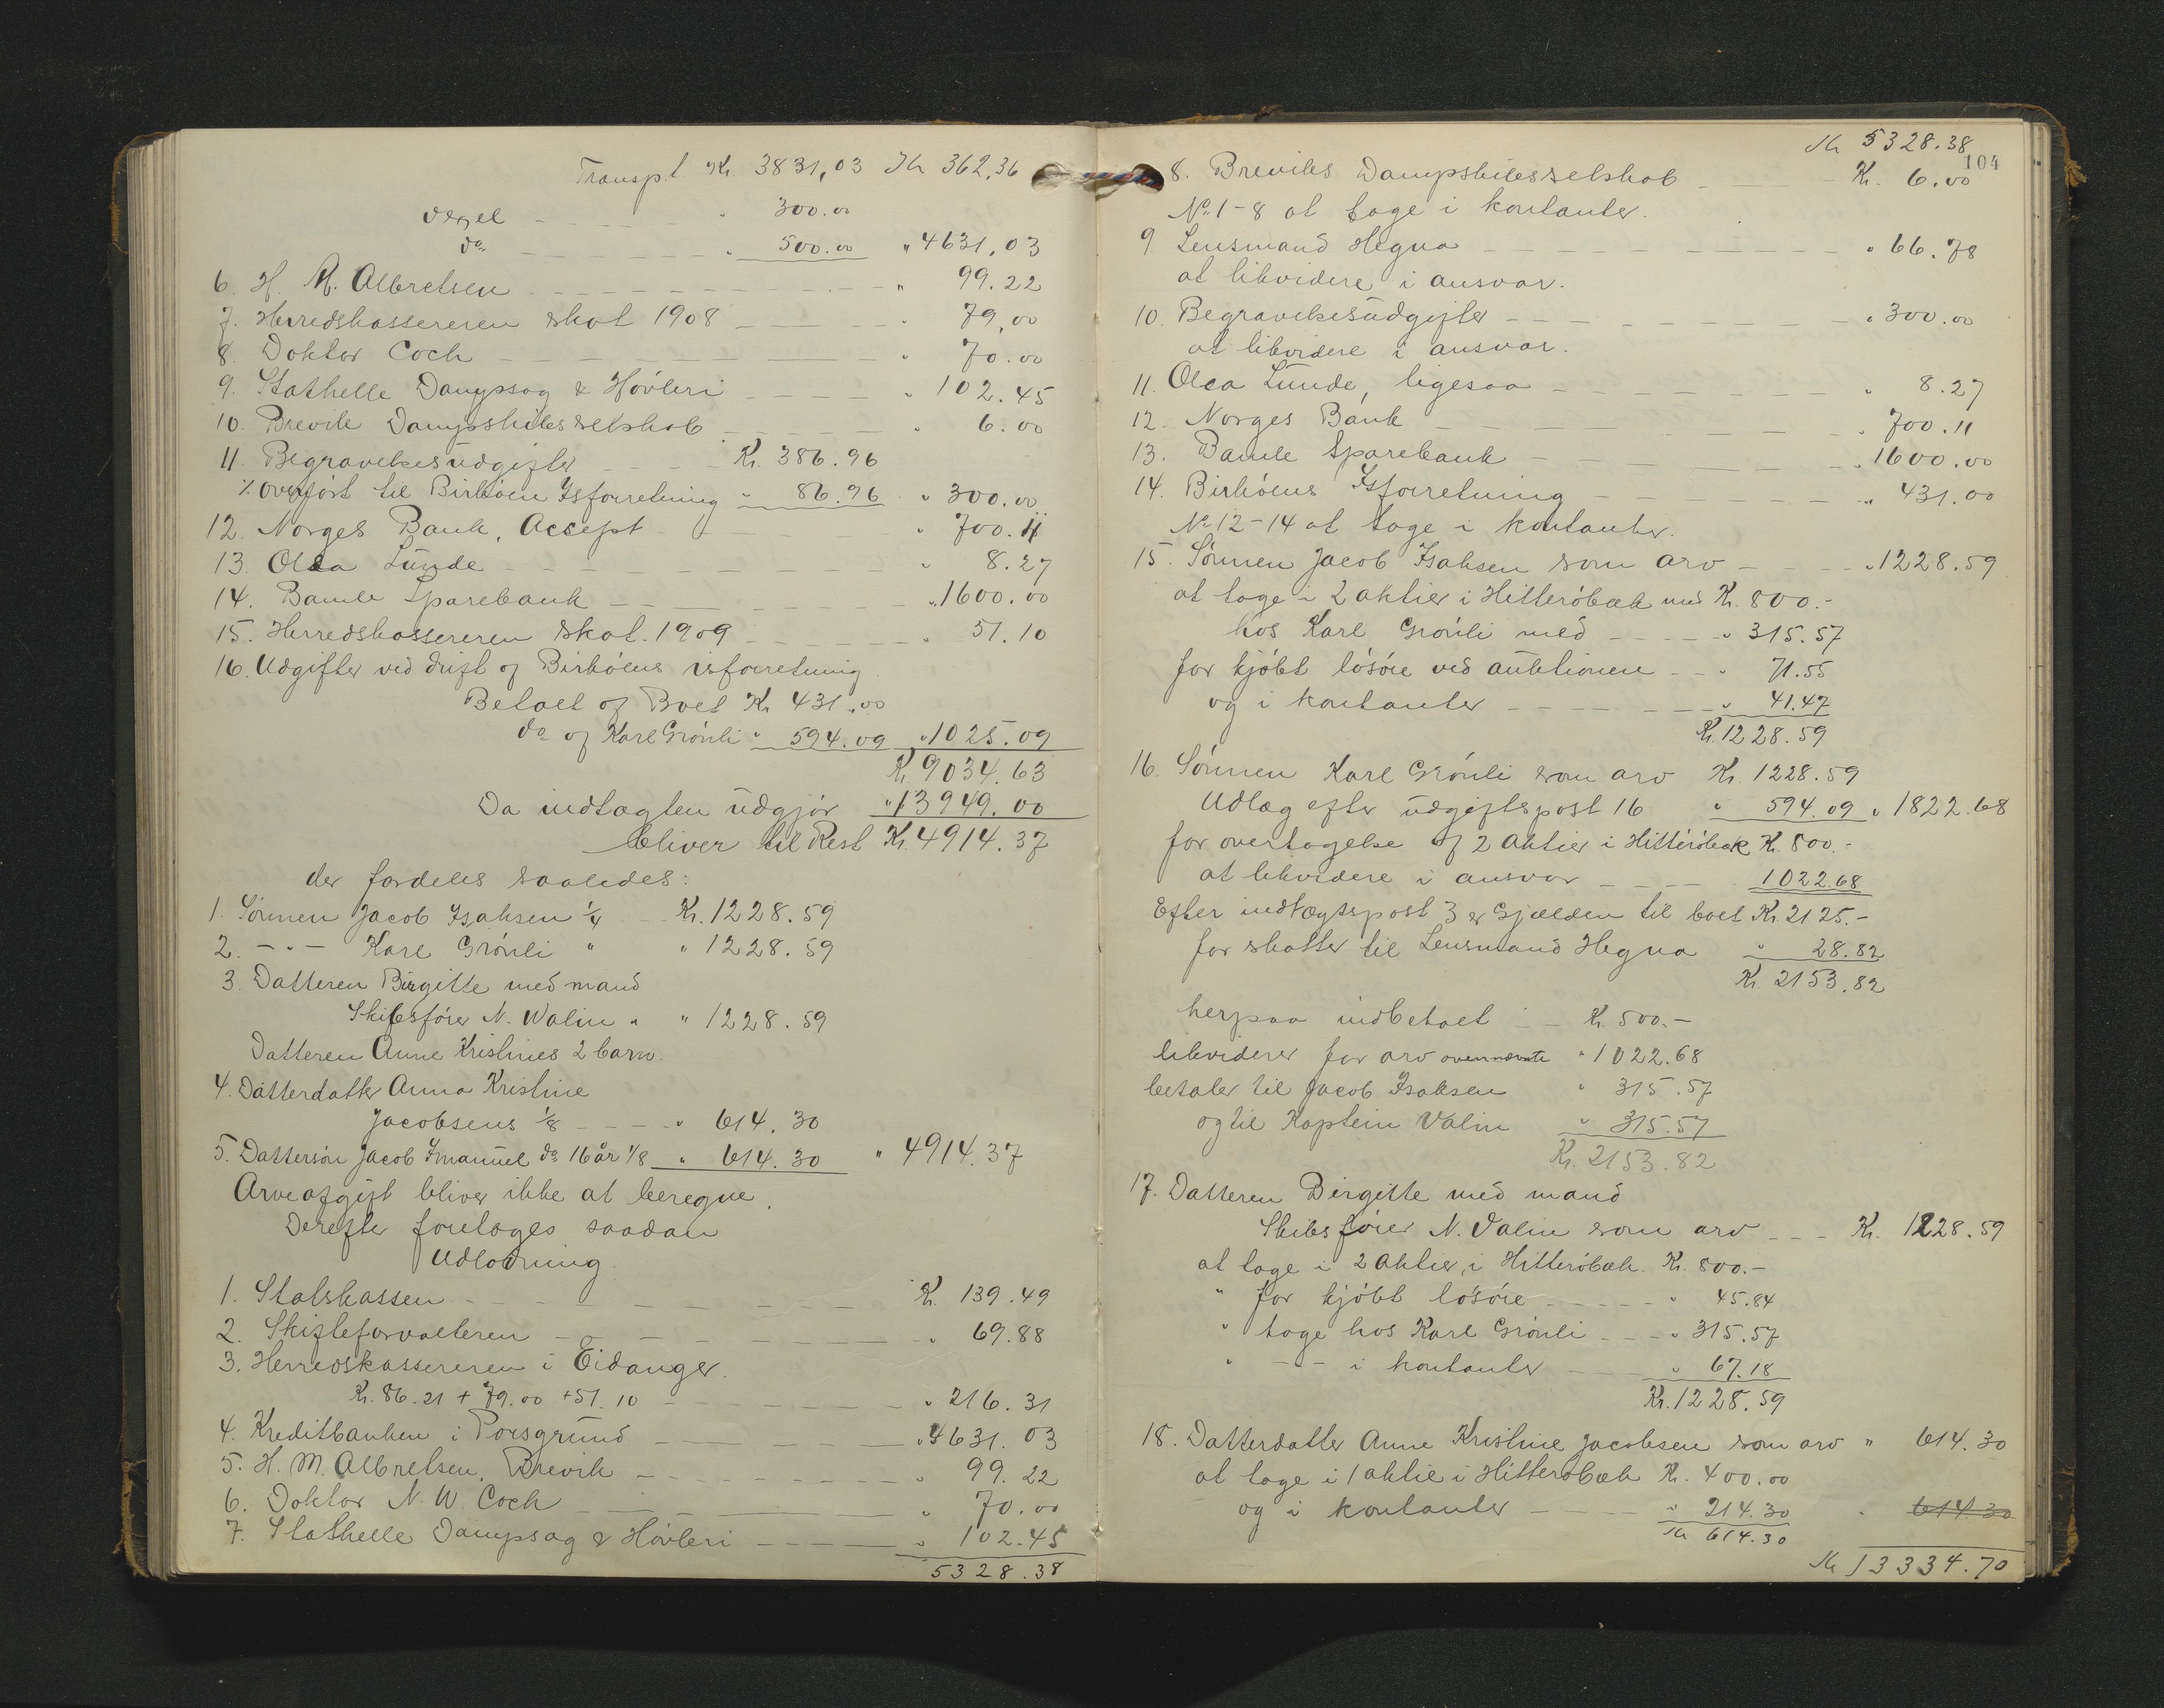 Transpt Kr. 3831,03 Kr 362,36
Vexel - " 300.00
do " 500.00 " 4631,03
6. H. M. Albretsen " 99.22
7. Herredskassereren skat 1908 " 79,00
8. Doktor Coch " 70.00
9. Stathelle Dampsag & Høvleri " 102.45
10. Brevik Dampskibsselskab " 6.00
11. Begravelsesudgifter Kr. 386.96
% overført til Birkåens Isforretning " 86.96 " 300.00
12. Norges Bank, Accept " 700.11
13. Olea Lunde " 8.27
14. Bamle Sparebank " 1600.00
15. Herredskassereren skat. 1909 " 51.10
16. Udgifter ved drift af Birkåens isforretning
Betalt af Boet Kr 431.00
do af Karl Grönli " 594.09 " 1025.09
Kr 9034.63
Da indtagten udgjør " 13949.00
bliver til Rest Kr. 4914.37
der fordeles saaledes:
1. Sønnen Jacob Isaksen 1/4 Kr. 1228.59
2. - " - Karl Grönli " " 1228.59
3. Datteren Birgitte med mand
Skibsfører N. Walin " " 1228.59
Datteren Anne Kristines 2 barn.
4. Datterdatter Anna Kristine
Jacobsens 1/8 " 614.30
5. Dattersøn Jacob Imanuel do 16 år 1/8 " 614.30 " 4914.37
Arveafgift bliver ikke at beregne.
Derefter foretages saadan
Udlodning.
1. Statskassen Kr. 139.49
2. Skifteforvalteren " 69.88
3. Herredskassereren i Eidanger.
Kr. 86.21 + 79.00 + 51.10 " 216.31
4. Kreditbanken i Porsgrund " 4631.03
5. H. M. Albretsen, Brevik " 99.22
6. Doktor N. W. Coch " 70.00
7. Stathelle Dampsag & Høvleri " 102.45
5328.38
Kr 5328.38
104
8. Breviks Dampskibsselskab Kr. 6.00
No 1-8 at tage i kontanter.
9. Lensmand Hegna " 66.78
at likvidere i ansvar.
10. Begravelsesudgifter " 300.00
at likvidere i ansvar.
11. Olea Lunde, ligesaa " 8.27
12. Norges Bank " 700.11
13. Bamle Sparebank " 1600.00
14. Birkåens Isforretning " 431.00
No 12-14 at tage i kontanter.
15. Sønnen Jacob Isaksen som arv " 1228.59
at tage i 2 aktier i Hitterøbæk med Kr. 800.-
hos Karl Grönli med " 315.57
for kjøbt løsøre ved auktionen " 71.55
og i kontanter " 41.47
Kr. 1228.59
16. Sønnen Karl Grönli som arv Kr. 1228.59
Udlæg efter udgiftspost 16 " 594.09 " 1822.68
for overtagelse af 2 Aktier i Hitterøbæk Kr. 800.-
at likvidere i ansvar 1022.68
Efter indtægtspost 3 er Gjælden til boet Kr 2125.-
for skatter til Lensmand Hegna " 28.82
Kr. 2153.82
herpaa indbetalt Kr. 500.-
likviderer for arv ovennævnte " 1022.68
betaler til Jacob Isaksen " 315.57
og til Kaptein Valin " 315.57
Kr. 2153.82
17. Datteren Birgitte med mand
Skibsfører N. Valin som arv Kr. 1228.59
at tage i 2 aktier i Hitterøbæk. Kr. 800.-
" for kjøbt løsøre " 45.84
" tage hos Karl Grönli " 315.57
" - - i kontanter " 67.18
Kr. 1228.59
18. Datterdatter Anne Kristine Jacobsen som arv " 614.30
at tage i 1 aktie i Hitterøbæk Kr. 400.00
og i kontanter " 214.30 " 614.30
Kr 614.30
Kr 13334.70